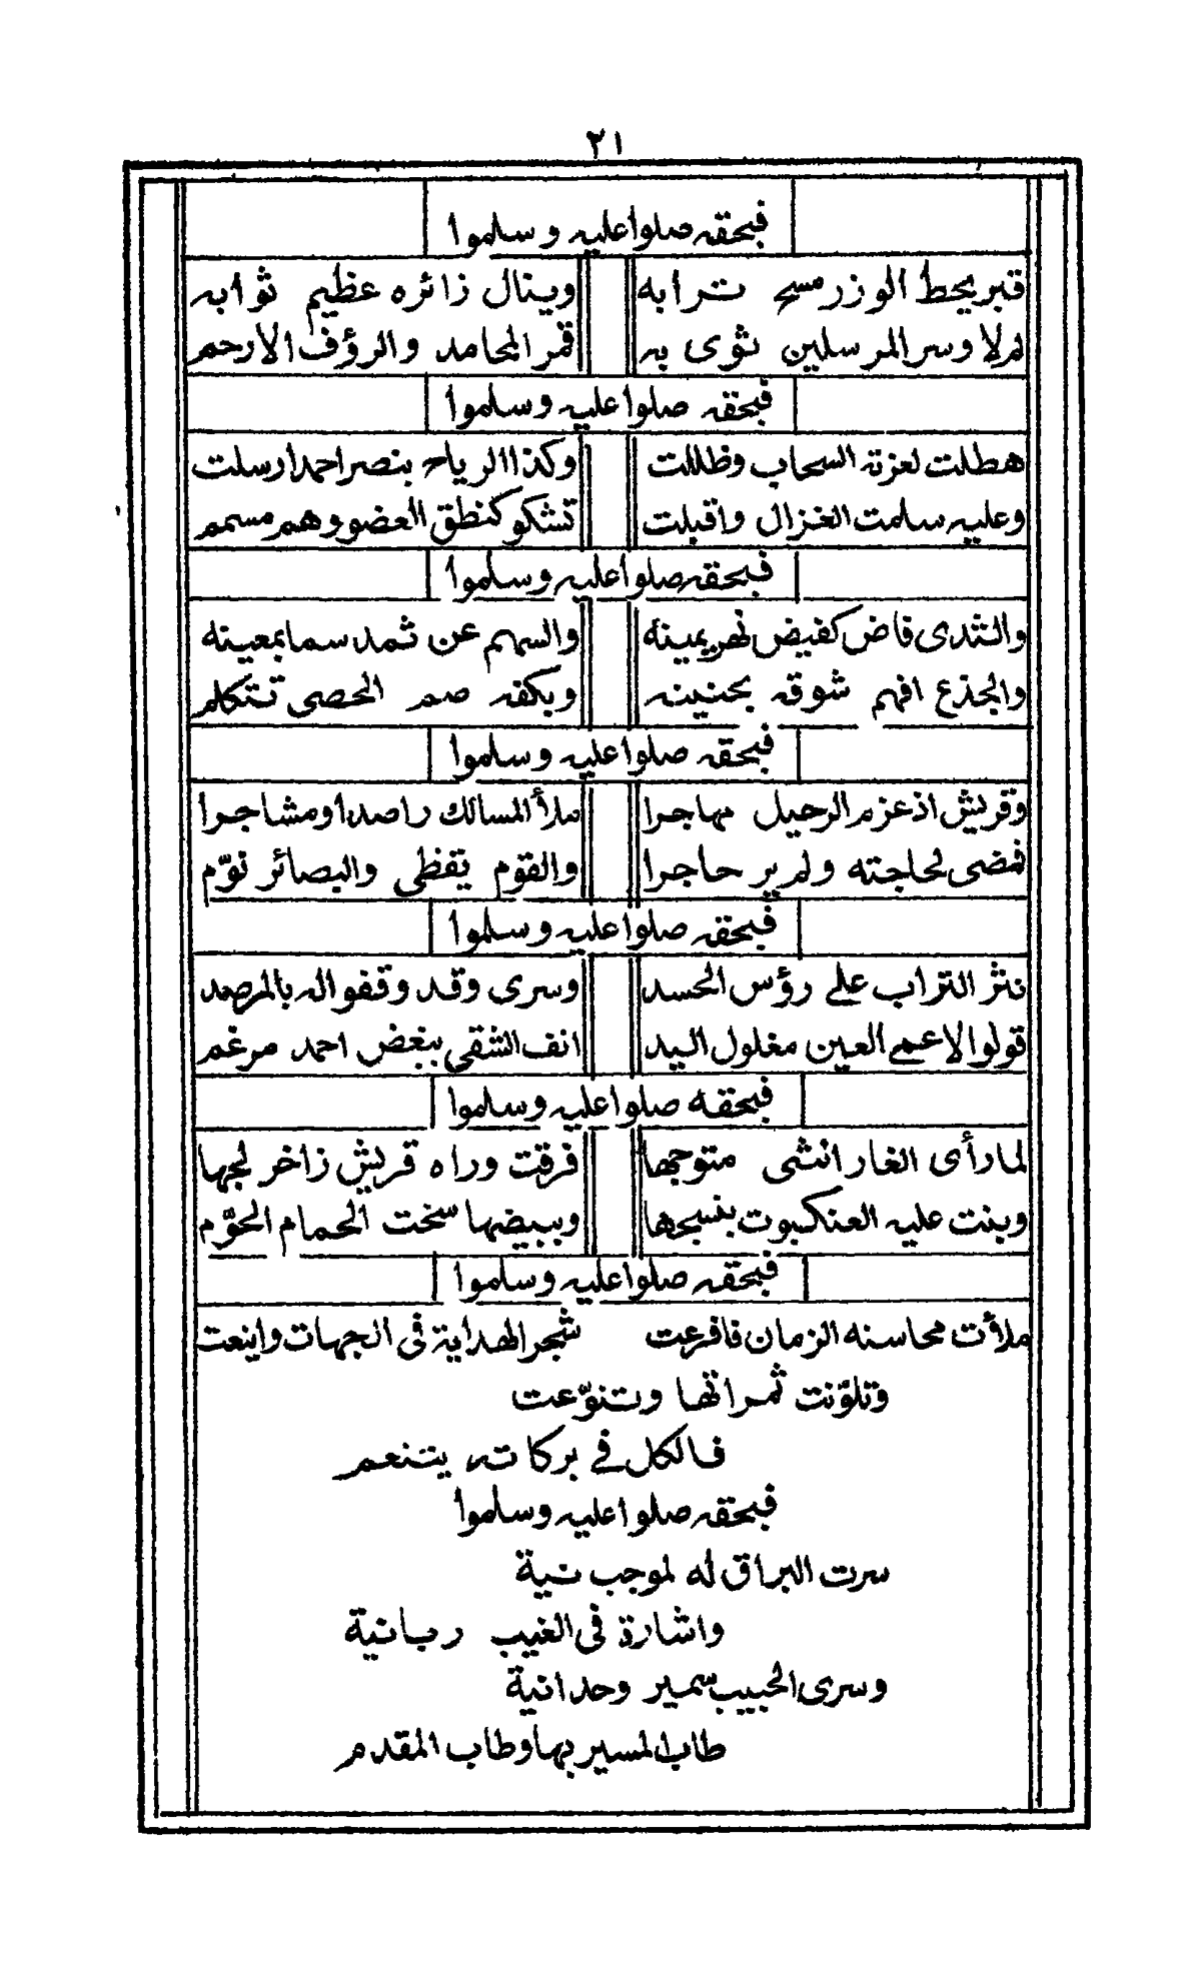 ٢١
فبحقه صلوا عليه وسلموا
قبر يحط الوزر مسح ترابه وينال زائره عظيم ثوابه
لم لا وسر المرسلين ثوى به قمر المحامد والرؤف الارحم
فبحقه صلوا عليه وسلموا
هطلت لعزته السحاب وظللت وكذا الرياح بنصر احمد ارسلت
وعليه سلمت الغزال واقبلت تشكو كنطق العضو وهم مسمم
فبحقه صلوا عليه وسلموا
والثدى فاض كفيض نهر يمينه والسهم عن ثمد سما بمعينه
والجذع افهم شوقه بحنينه وبكفه صم الحصى تتكلم
فبحقه صلوا عليه وسلموا
وقريش اذ عزم الرحيل مهاجرا ملأ المسالك راصدا ومشاجرا
فمضى لحاجته ولم ير حاجرا والقوم يقظى والبصائر نوّم
فبحقه صلوا عليه وسلموا
نثر التراب على رؤس الحسد وسرى وقد وقفوا له بالمرصد
قولوا لاعمى العين مغلول اليد انف الشقى ببغض احمد مرغم
فبحقه صلوا عليه وسلموا
لما رأى الغار انثنى متوجها فرقت وراه قريش زاخر لجها
وبنت عليه العنكبوت بنسجها وببيضها سخت الحمام الحوّم
فبحقه صلوا عليه وسلموا
ملأت محاسنه الزمان فافرعت شجر الهداية فى الجهات واينعت
وتلوّنت ثمراتها وتنوّعت
فالكل فى بركاته يتنعم
فبحقه صلوا عليه وسلموا
سرت البراق له لموجب نية
واشارة فى الغيب ربانية
وسرى الحبيب سمير وحدانية
طاب المسير بها وطاب المقدم